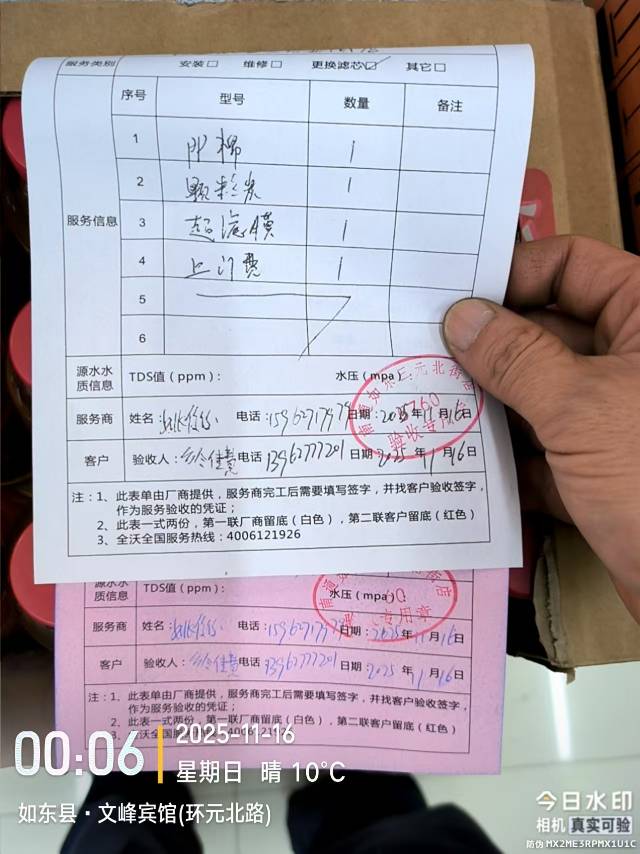 服务类别 安装☐ 维修☐ 更换滤芯☑ 其它☐
序号 型号 数量 备注
服务信息
1 PP棉 1
2 颗粒炭 1
3 超滤膜 1
4 上门费 1
5
6
源水水质信息 TDS值（ppm）： 水压（mpa）：
服务商 姓名： 电话：15962717979 日期：2025年11月16日
客户 验收人： 电话13962777201 日期 2025年11月16日
注：1、此表单由厂商提供，服务商完工后需要填写签字，并找客户验收签字，
作为服务验收的凭证；
2、此表一式两份，第一联厂商留底（白色），第二联客户留底（红色）
3、全沃全国服务热线：4006121926
源水水质信息 TDS值（ppm）： 水压（mpa）
服务商 姓名： 电话：15962717979 日期：2025年11月16日
客户 验收人： 电话13962777201 日期 2025年11月16日
注：1、此表单由厂商提供，服务商完工后需要填写签字，并找客户验收签字，
作为服务验收的凭证；
2、此表一式两份，第一联厂商留底（白色），第二联客户留底（红色）
3、全沃全国服务热线：40061219
00:06 2025-11-16
星期日 晴 10°C
如东县·文峰宾馆(环元北路)
今日水印
相机 真实可验
防伪 MX2ME3RPMX1U1C